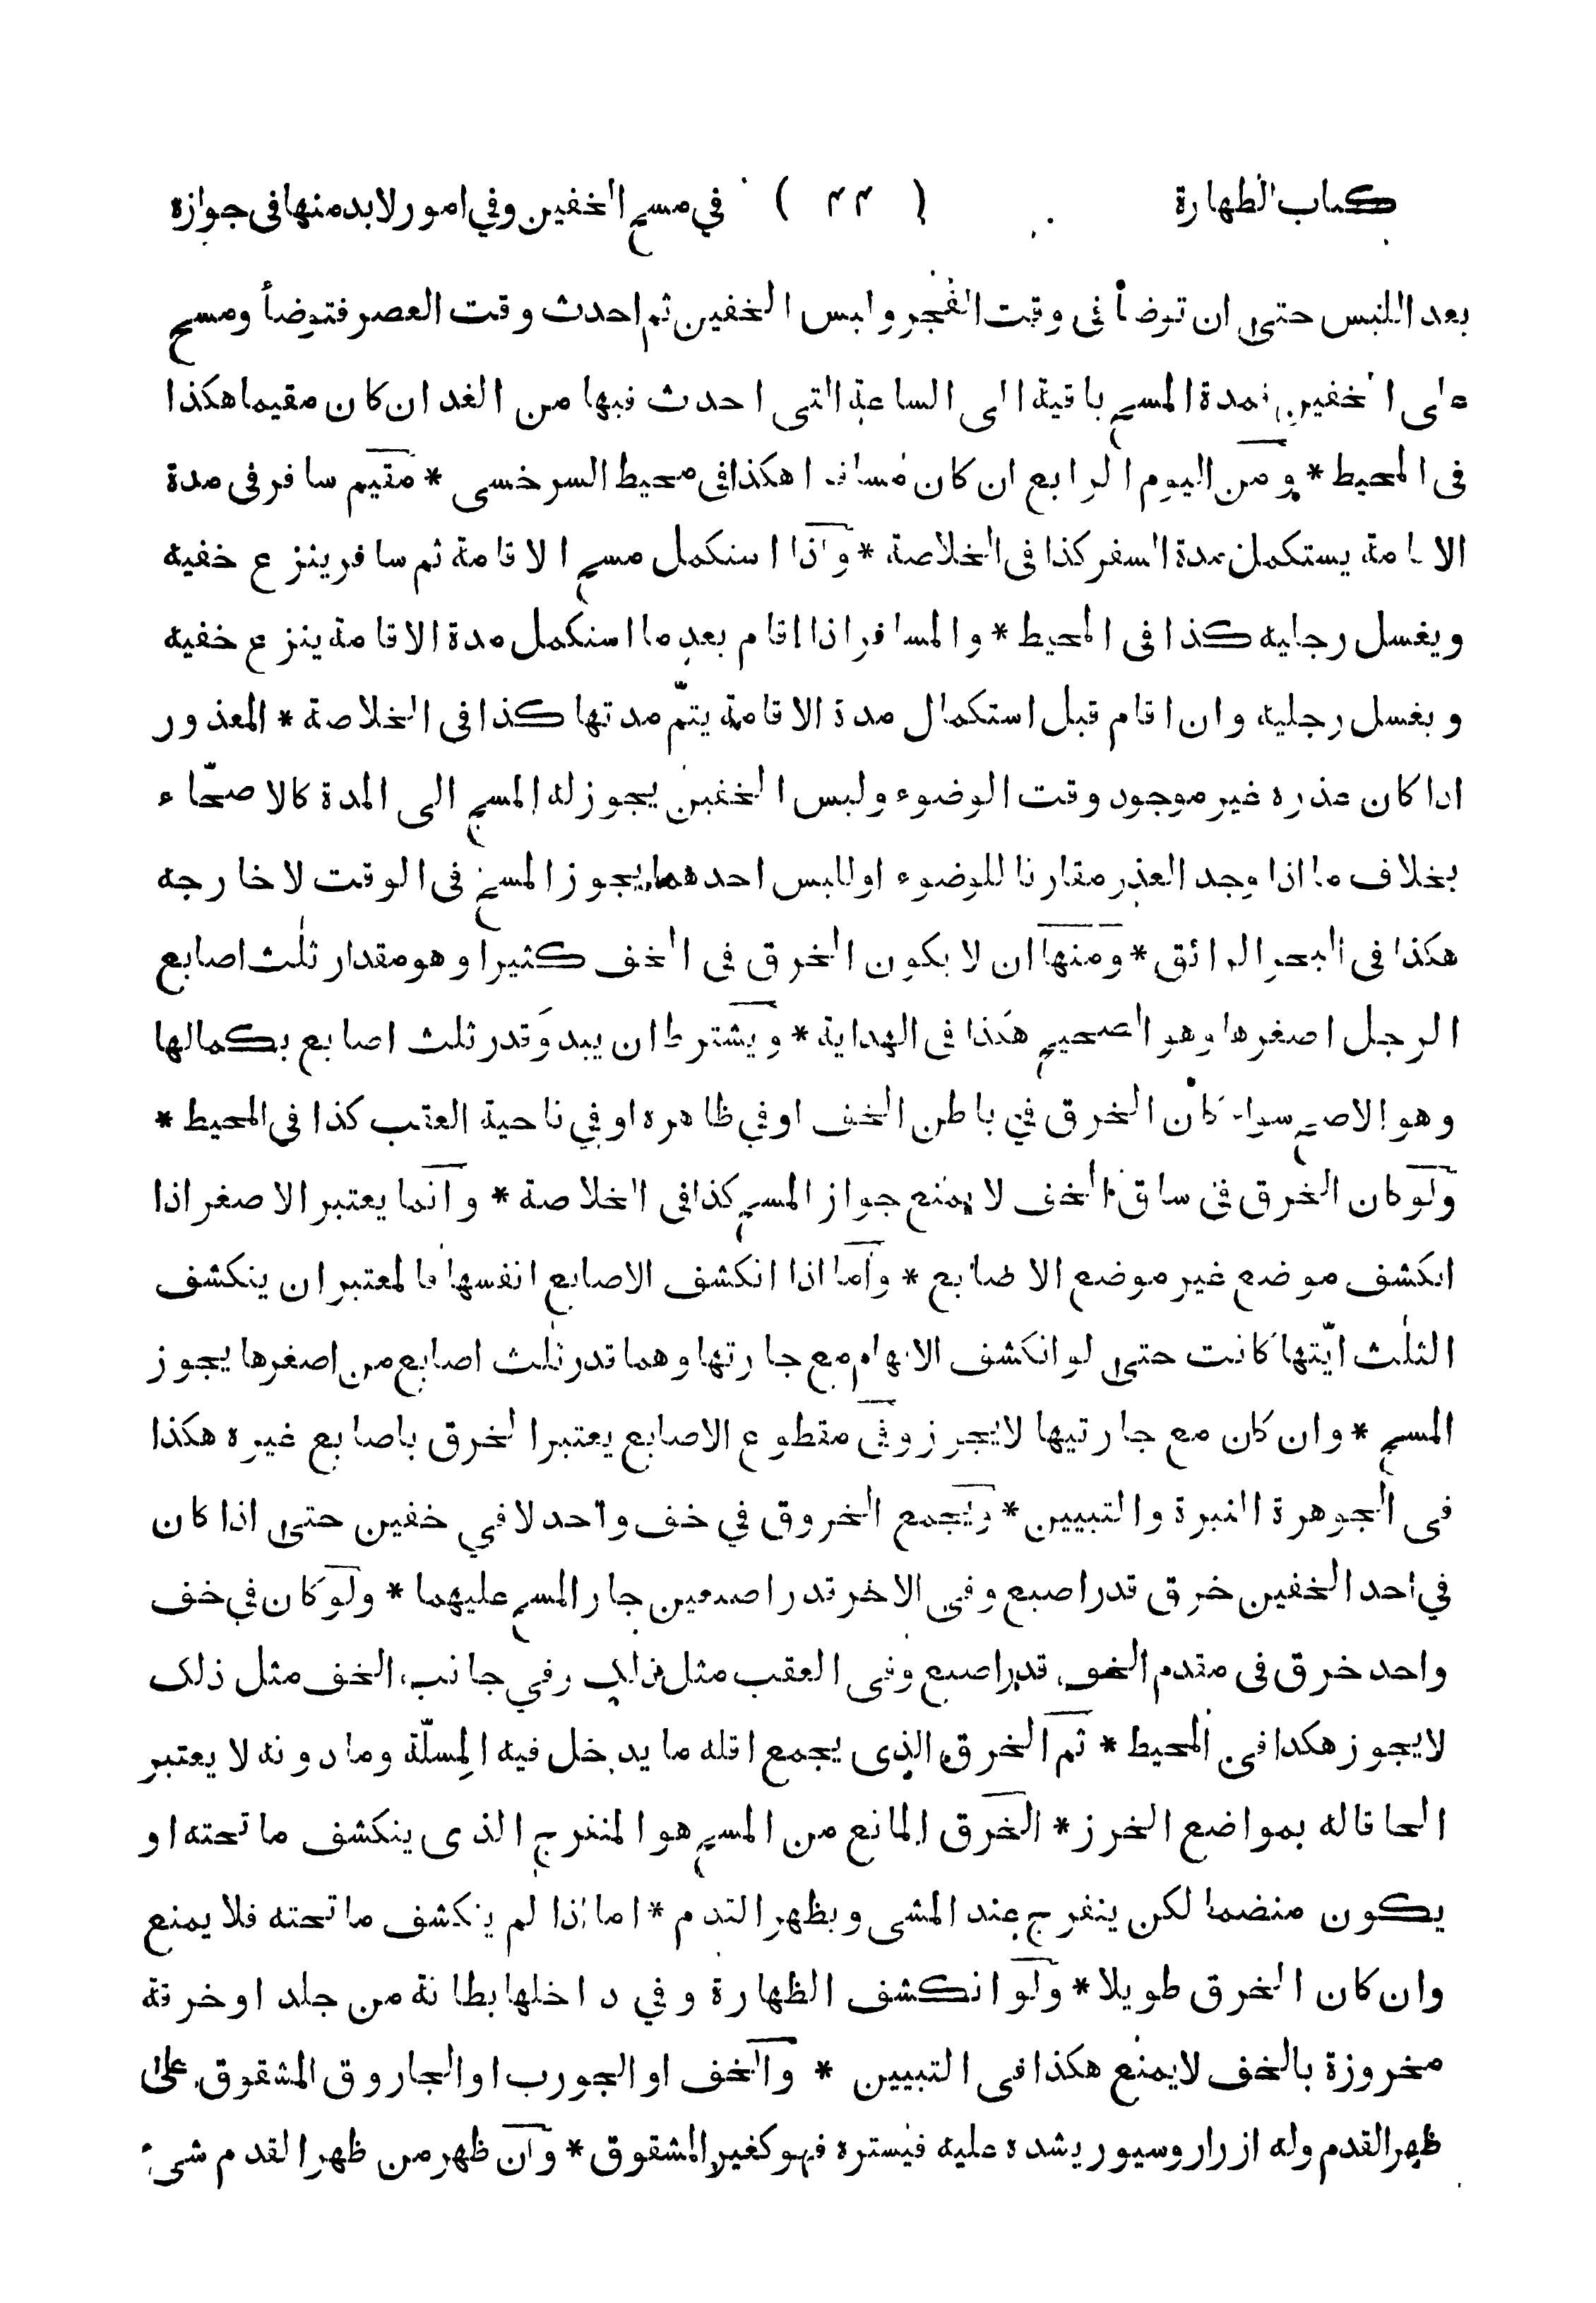 كتاب الطهارة ( ٤٤ ) في مسح الخفين وفي امور لابد منها فى جوازه
بعد اللبس حتى ان توضأ فى وقت الفجر ولبس الخفين ثم احدث وقت العصر فتوضأ ومسح
على الخفين فمدة المسح باقية الى الساعة التى احدث فيها من الغد ان كان مقيما هكذا
فى المحيط * ومن اليوم الرابع ان كان مسافرا هكذا فى محيط السرخسى * مقيم سافر فى مدة
الاقامة يستكمل مدة السفر كذا فى الخلاصة * واذا استكمل مسح الاقامة ثم سافر ينزع خفيه
ويغسل رجليه كذا فى المحيط * والمسافر اذا اقام بعد ما استكمل مدة الاقامة ينزع خفيه
ويغسل رجليه وان اقام قبل استكمال مدة الاقامة يتمّ مدتها كذا فى الخلاصة * المعذور
اذا كان عذره غير موجود وقت الوضوء ولبس الخفين يجوز له المسح الى المدة كالاصحّاء
بخلاف ما اذا وجد العذر مقارنا للوضوء او للبس احدهما يجوز المسح فى الوقت لا خارجه
هكذا فى البحر الرائق * ومنها ان لا يكون الخرق فى الخف كثيرا وهو مقدار ثلٰث اصابع
الرجل اصغرها وهو الصحيح هكذا فى الهداية * ويشترط ان يبدو قدر ثلث اصابع بكمالها
وهو الاصح سواء كان الخرق في باطن الخف او في ظاهره او في ناحية العقب كذا فى المحيط *
ولو كان الخرق فى ساق الخف لا يمنع جواز المسح كذا فى الخلاصة * وانما يعتبر الاصغر اذا
انكشف موضع غير موضع الاصابع * واما اذا انكشف الاصابع انفسها فالمعتبر ان ينكشف
الثلٰث ايّتها كانت حتى لو انكشف الابهام مع جارتها وهما قدر ثلٰث اصابع من اصغرها يجوز
المسح * وان كان مع جارتيها لا يجوز وفى مقطوع الاصابع يعتبر الخرق باصابع غيره هكذا
فى الجوهرة النيرة والتبيين * ويجمع الخروق في خف واحد لا في خفين حتى اذا كان
في احد الخفين خرق قدر اصبع وفى الاخر قدر اصبعين جاز المسح عليهما * ولو كان في خف
واحد خرق فى مقدم الخف قدر اصبع وفى العقب مثل ذلك وفي جانب الخف مثل ذلک
لا يجوز هكذا فى المحيط * ثم الخرق الذى يجمع اقله ما يدخل فيه المِسلّة وما دونه لا يعتبر
الحاقا له بمواضع الخرز * الخرق المانع من المسح هو المنفرج الذى ينكشف ما تحته او
يكون منضما لكن ينفرج عند المشى ويظهر القدم * اما اذا لم ينكشف ما تحته فلا يمنع
وان كان الخرق طويلا * ولو انكشف الظهارة وفي داخلها بطانة من جلد او خرقة
مخروزة بالخف لا يمنع هكذا فى التبيين * والخف او الجورب او الجاروق المشقوق على
ظهر القدم وله ازرار وسيور يشده عليه فيستره فهو كغير المشقوق * وان ظهر من ظهر القدم شىء